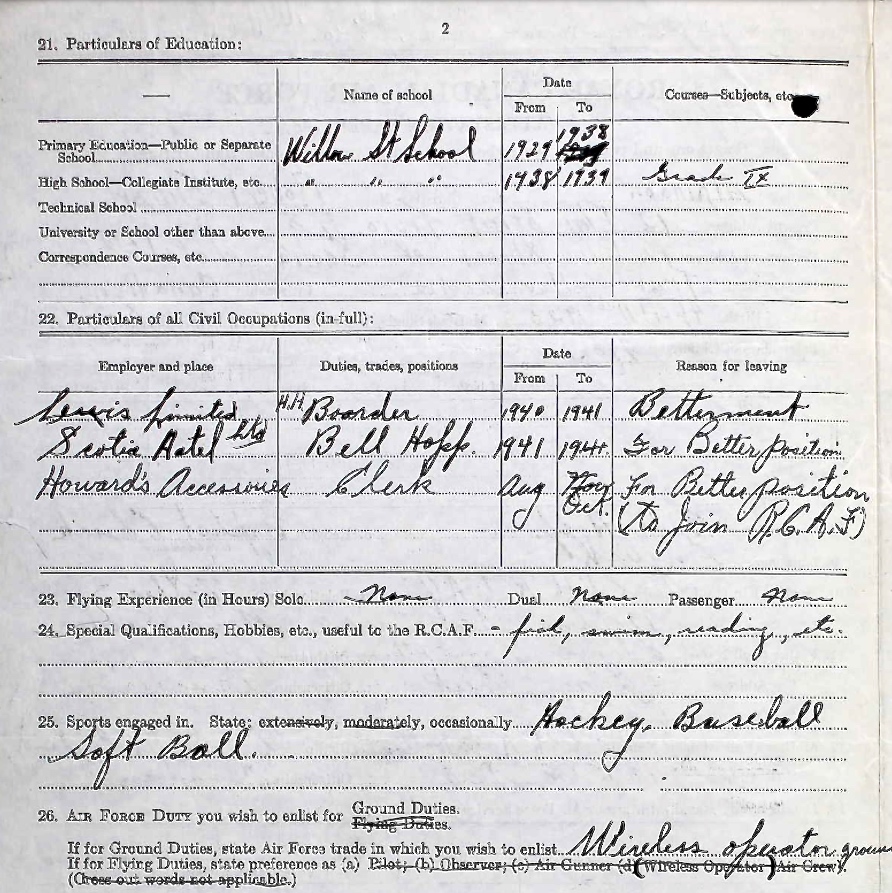 2
21. Particulars of Education:
— Name of school Date Courses—Subjects, etc.
From To
Primary Education—Public or Separate School Willow St School 1929 1938
High School—Collegiate Institute, etc. " " " 1938 1939 Grade IX
Technical School
University or School other than above
Correspondence Courses, etc.
22. Particulars of all Civil Occupations (in full):
Employer and place Duties, trades, positions Date Reason for leaving
From To
Lewis Limited H.H. Boarder 1940 1941 Betterment
Scotia Hotel Ltd Bell Hopp. 1941 1941 For Better position
Howard's Accessories Clerk Aug Nov For Better position
Oct. (to Join R.C.A.F)
23. Flying Experience (in Hours) Solo None Dual None Passenger None
24. Special Qualifications, Hobbies, etc., useful to the R.C.A.F. - fish, swim, reading, etc.
25. Sports engaged in. State: extensively, moderately, occasionally Hockey, Baseball
Soft Ball.
26. AIR FORCE DUTY you wish to enlist for Ground Duties.
Flying Duties.
If for Ground Duties, state Air Force trade in which you wish to enlist Wireless operator ground
If for Flying Duties, state preference as (a) Pilot; (b) Observer; (c) Air Gunner (d) (Wireless Operator) Air Crew).
(Cross out words not applicable.)